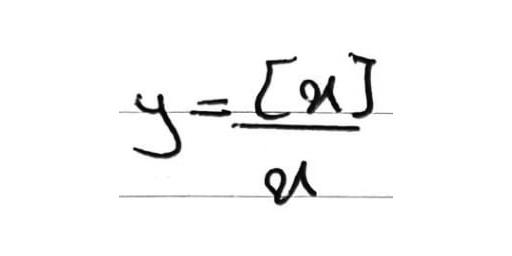 y = [x] / x